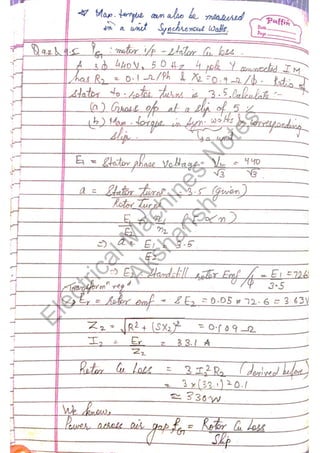 Max. torque can also be measured
in a unit Synchronous Watts.
Puffin
Date
Page
PG = motor i/p - stator Cu loss.
A 3ϕ 440V, 50 Hz 4 pole Y connected I M
has R2 = 0.1 Ω/Ph & X2 = 0.9 Ω/ϕ. Ratio of
stator to rotor turns is 3.5. Calculate :-
(a) Gross o/p at a slip of 5 %
(b) Max. torque in Syn. watts & corresponding
slip. is a unit
E1 = Stator phase Voltage = VL/√3 = 440/√3
a = Stator turns / Rotor Turns = 3.5 (given)
E1/E2 = n1/n2 (E ∝ n)
⇒ a = E1/E2 = 3.5
⇒ E2 = Standstill rotor Emf/ϕ = E1/3.5 = 72.6
"Transform" reg
Er = Rotor emf = sE2 = 0.05 × 72.6 = 3.63V
Z2 = √R2² + (SX2)² = 0.109 Ω
I2 = Er/Z2 = 33.1 A
Rotor Cu Loss = 3 I2² R2 (derived before)
= 3 × (33.1)² 0.1
≈ 330W
We know,
Power across air gap PG = Rotor Cu Loss / Slip
Electrical Machines Notes